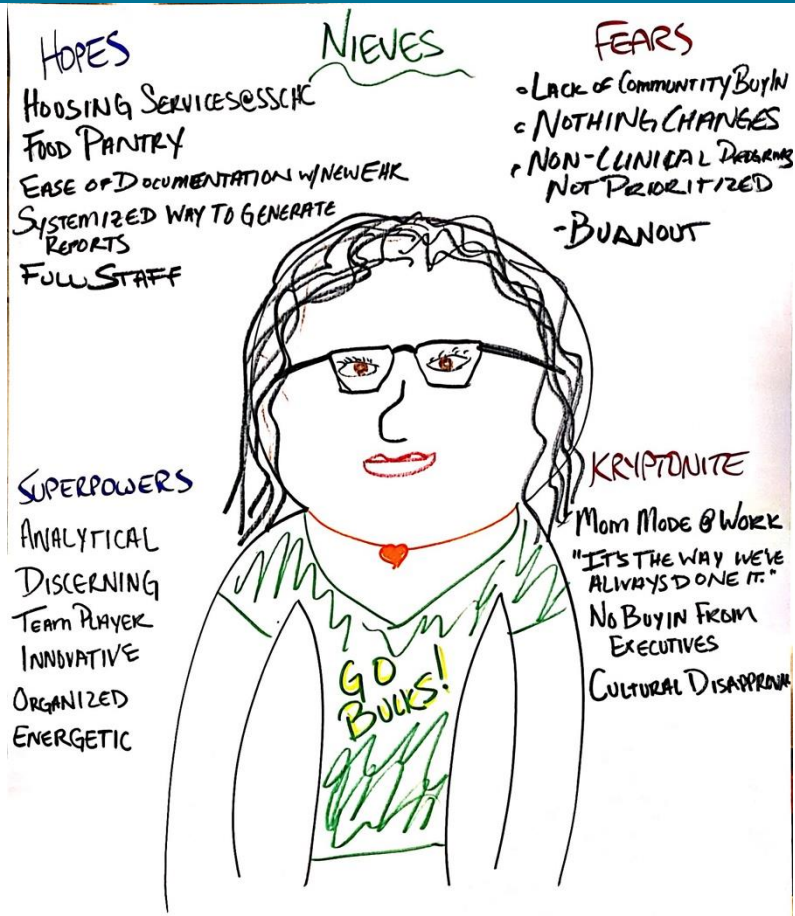 NIEVES
HOPES
HOUSING SERVICES@SSCHC
FOOD PANTRY
EASE OF DOCUMENTATION W/NEW EHR
SYSTEMIZED WAY TO GENERATE
REPORTS
FULL STAFF
FEARS
• LACK OF COMMUNTITY BUY IN
• NOTHING CHANGES
• NON-CLINICAL
NOT PRIORITIZED
-BURNOUT
SUPERPOWERS
ANALYTICAL
DISCERNING
TEAM PLAYER
INNOVATIVE
ORGANIZED
ENERGETIC
KRYPTONITE
MOM MODE @ WORK
"IT'S THE WAY WE'VE
ALWAYS DONE IT."
NO BUY IN FROM
EXECUTIVES
CULTURAL DISAPPROVAL
GO
BUCKS!